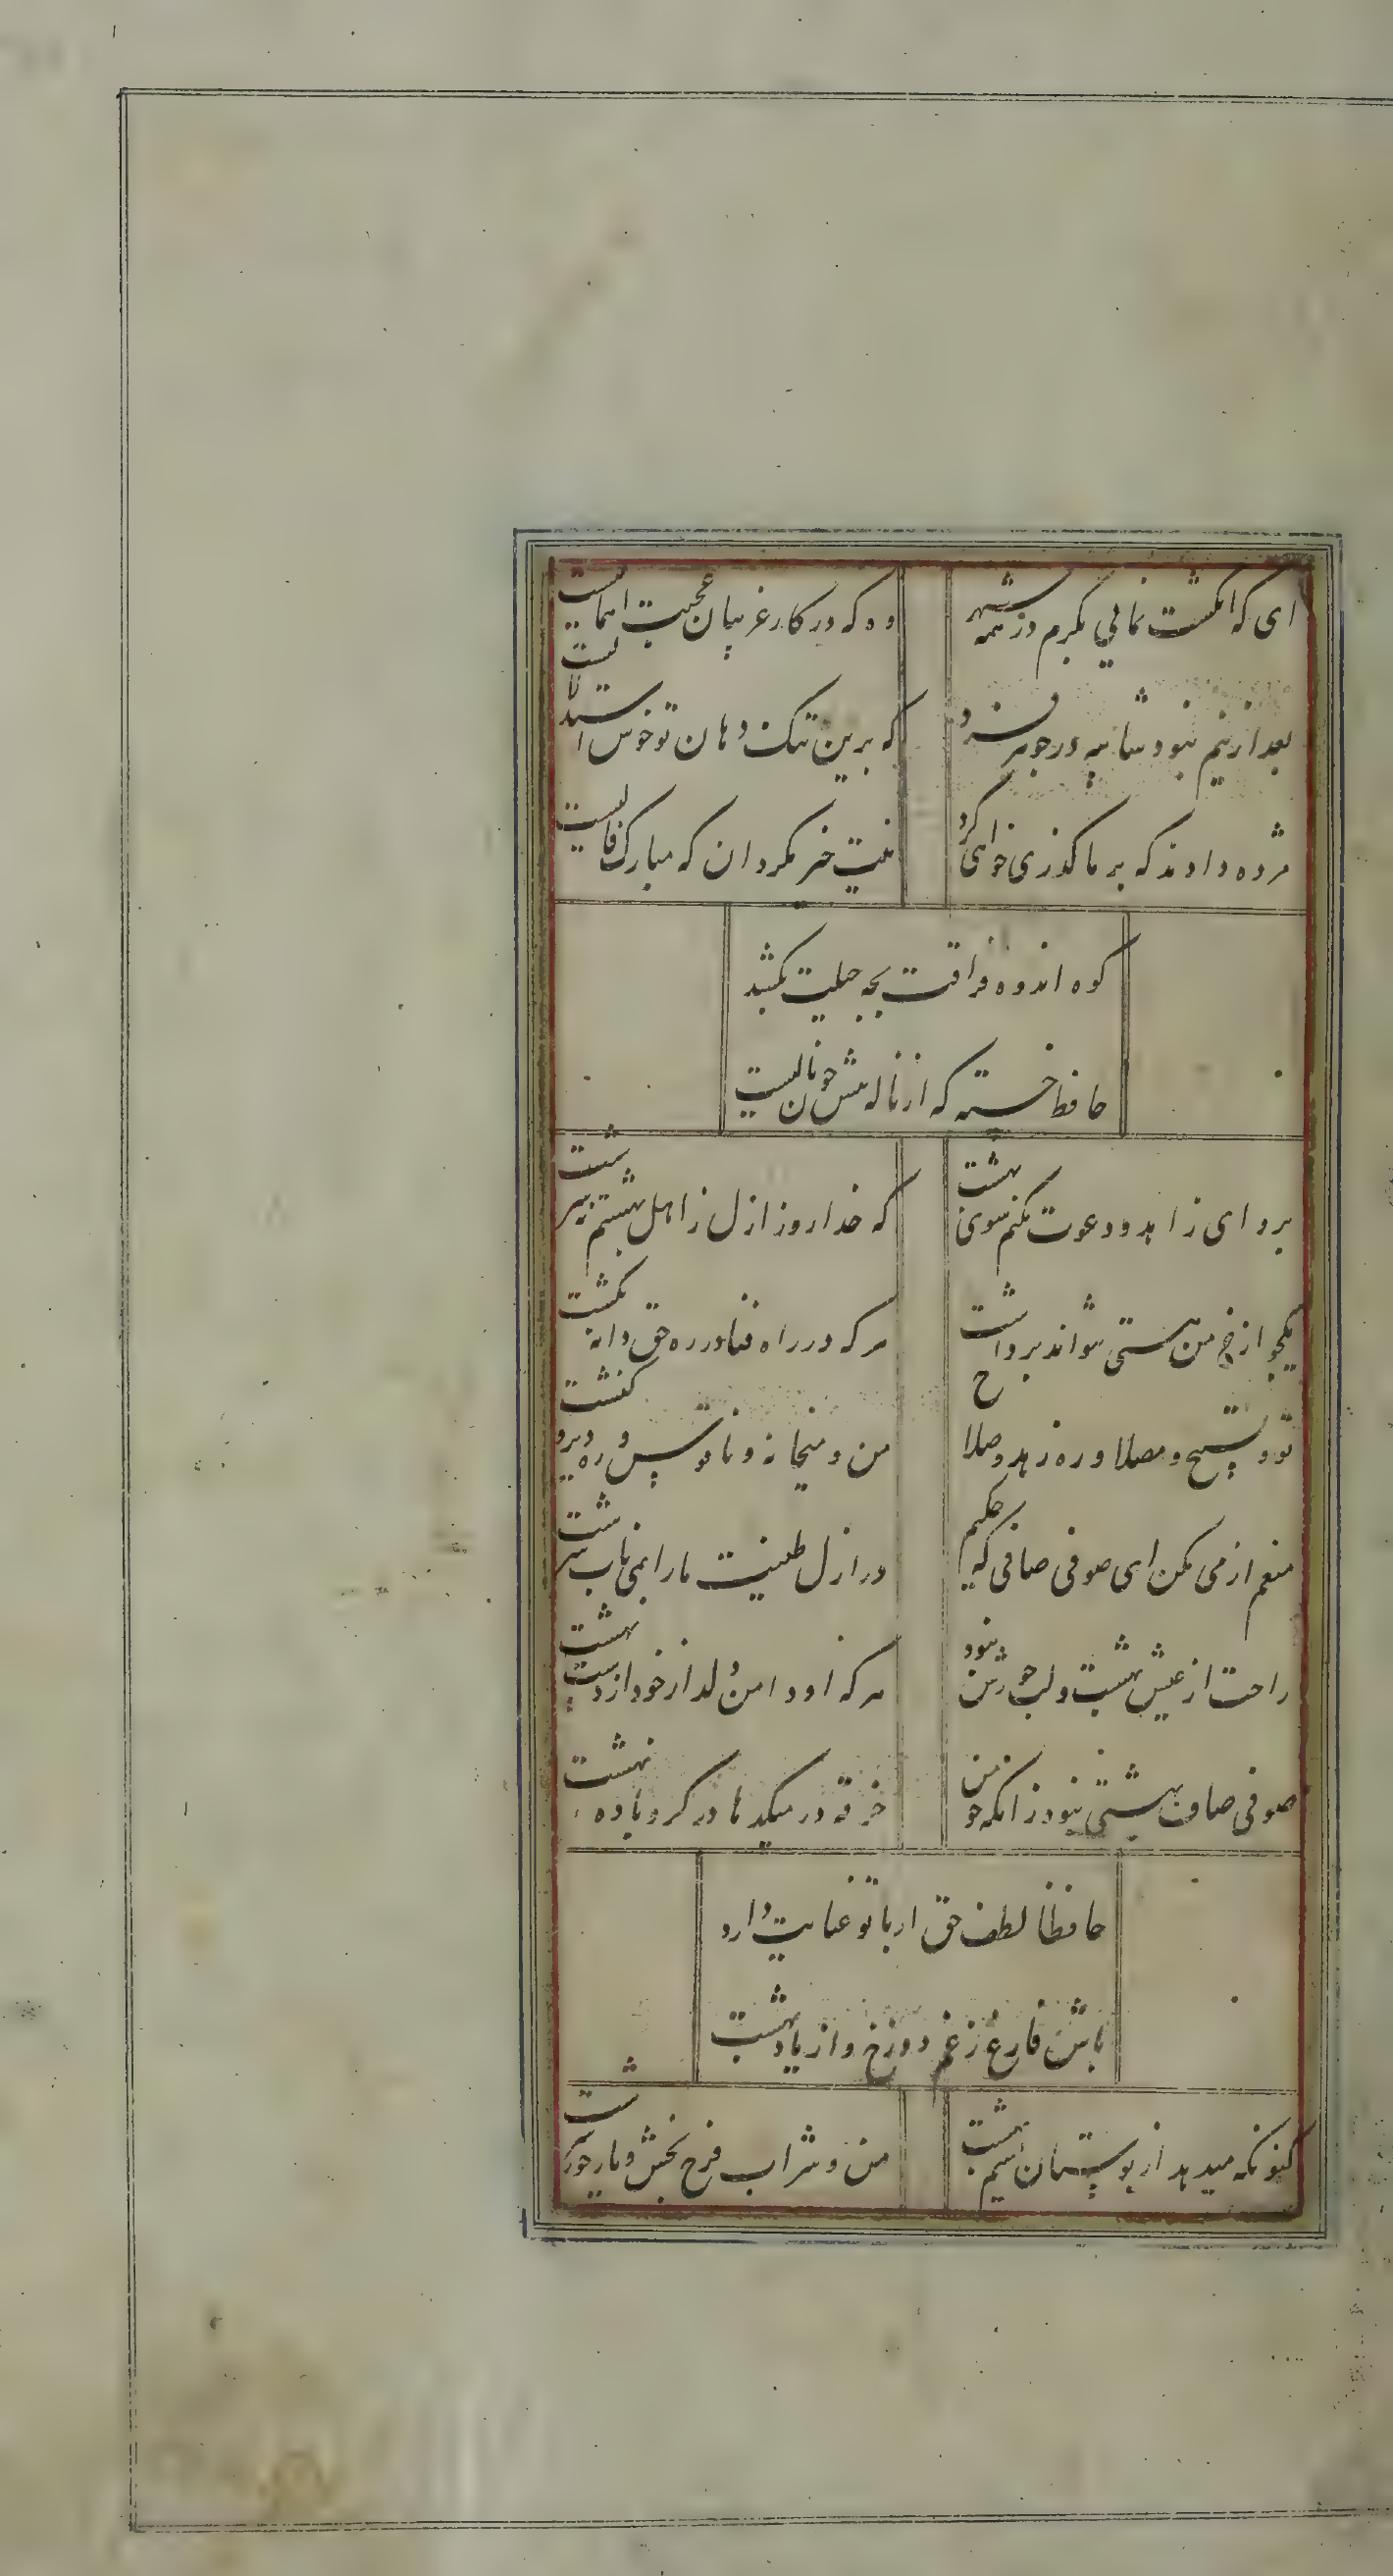 ای که انگشت نمائی بکرم در همه شهر وه که در کار غریبان عجبت اهمالیست
بعد ازینم نبود شائبه در جوهر فرد که برین تنک دهان تو خوش استدلالیست
مژده دادند که بر ما گذری خواهی کرد نیت خیر مگردان که مبارک فالیست
کوه اندوه فراقت بچه حیلت بکشد
حافظ خسته که از ناله تنش چون نالیست
برو ای زاهد و دعوت مکنم سوی بهشت که خدا روز ازل ز اهل بهشتم بسرشت
یکجو از خرمن هستی نتواند برداشت هر که در راه فنا در ره حق دانه نکشت
تو و تسبیح و مصلا و ره زهد و صلاح من و میخانه و ناقوس و ره دیر و کنشت
منعم از می مکن ای صوفی صافی که حکیم در ازل طینت ما را بمی ناب سرشت
راحت از عیش بهشت و لب حورش نبود هر که او دامن دلدار خود از دست بهشت
صوفی صاف بهشتی نبود زانکه چو من خرقه در میکدها در گرو باده نهشت
حافظا لطف حق ار با تو عنایت دارد
باش فارغ ز غم دوزخ و از یاد بهشت
کنونکه میدهد از بوستان نسیم بهشت من و شراب فرح بخش و یار حور سرشت